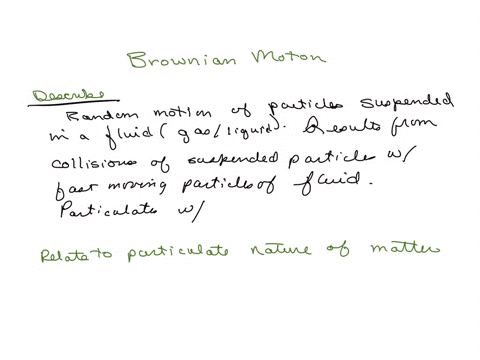 Brownian Moton
Describe
Random motion of particles suspended
in a fluid (gas/liquid). Results from
collisions of suspended particle w/
fast moving particles of fluid.
Particulates w/
Relate to particulate nature of matter